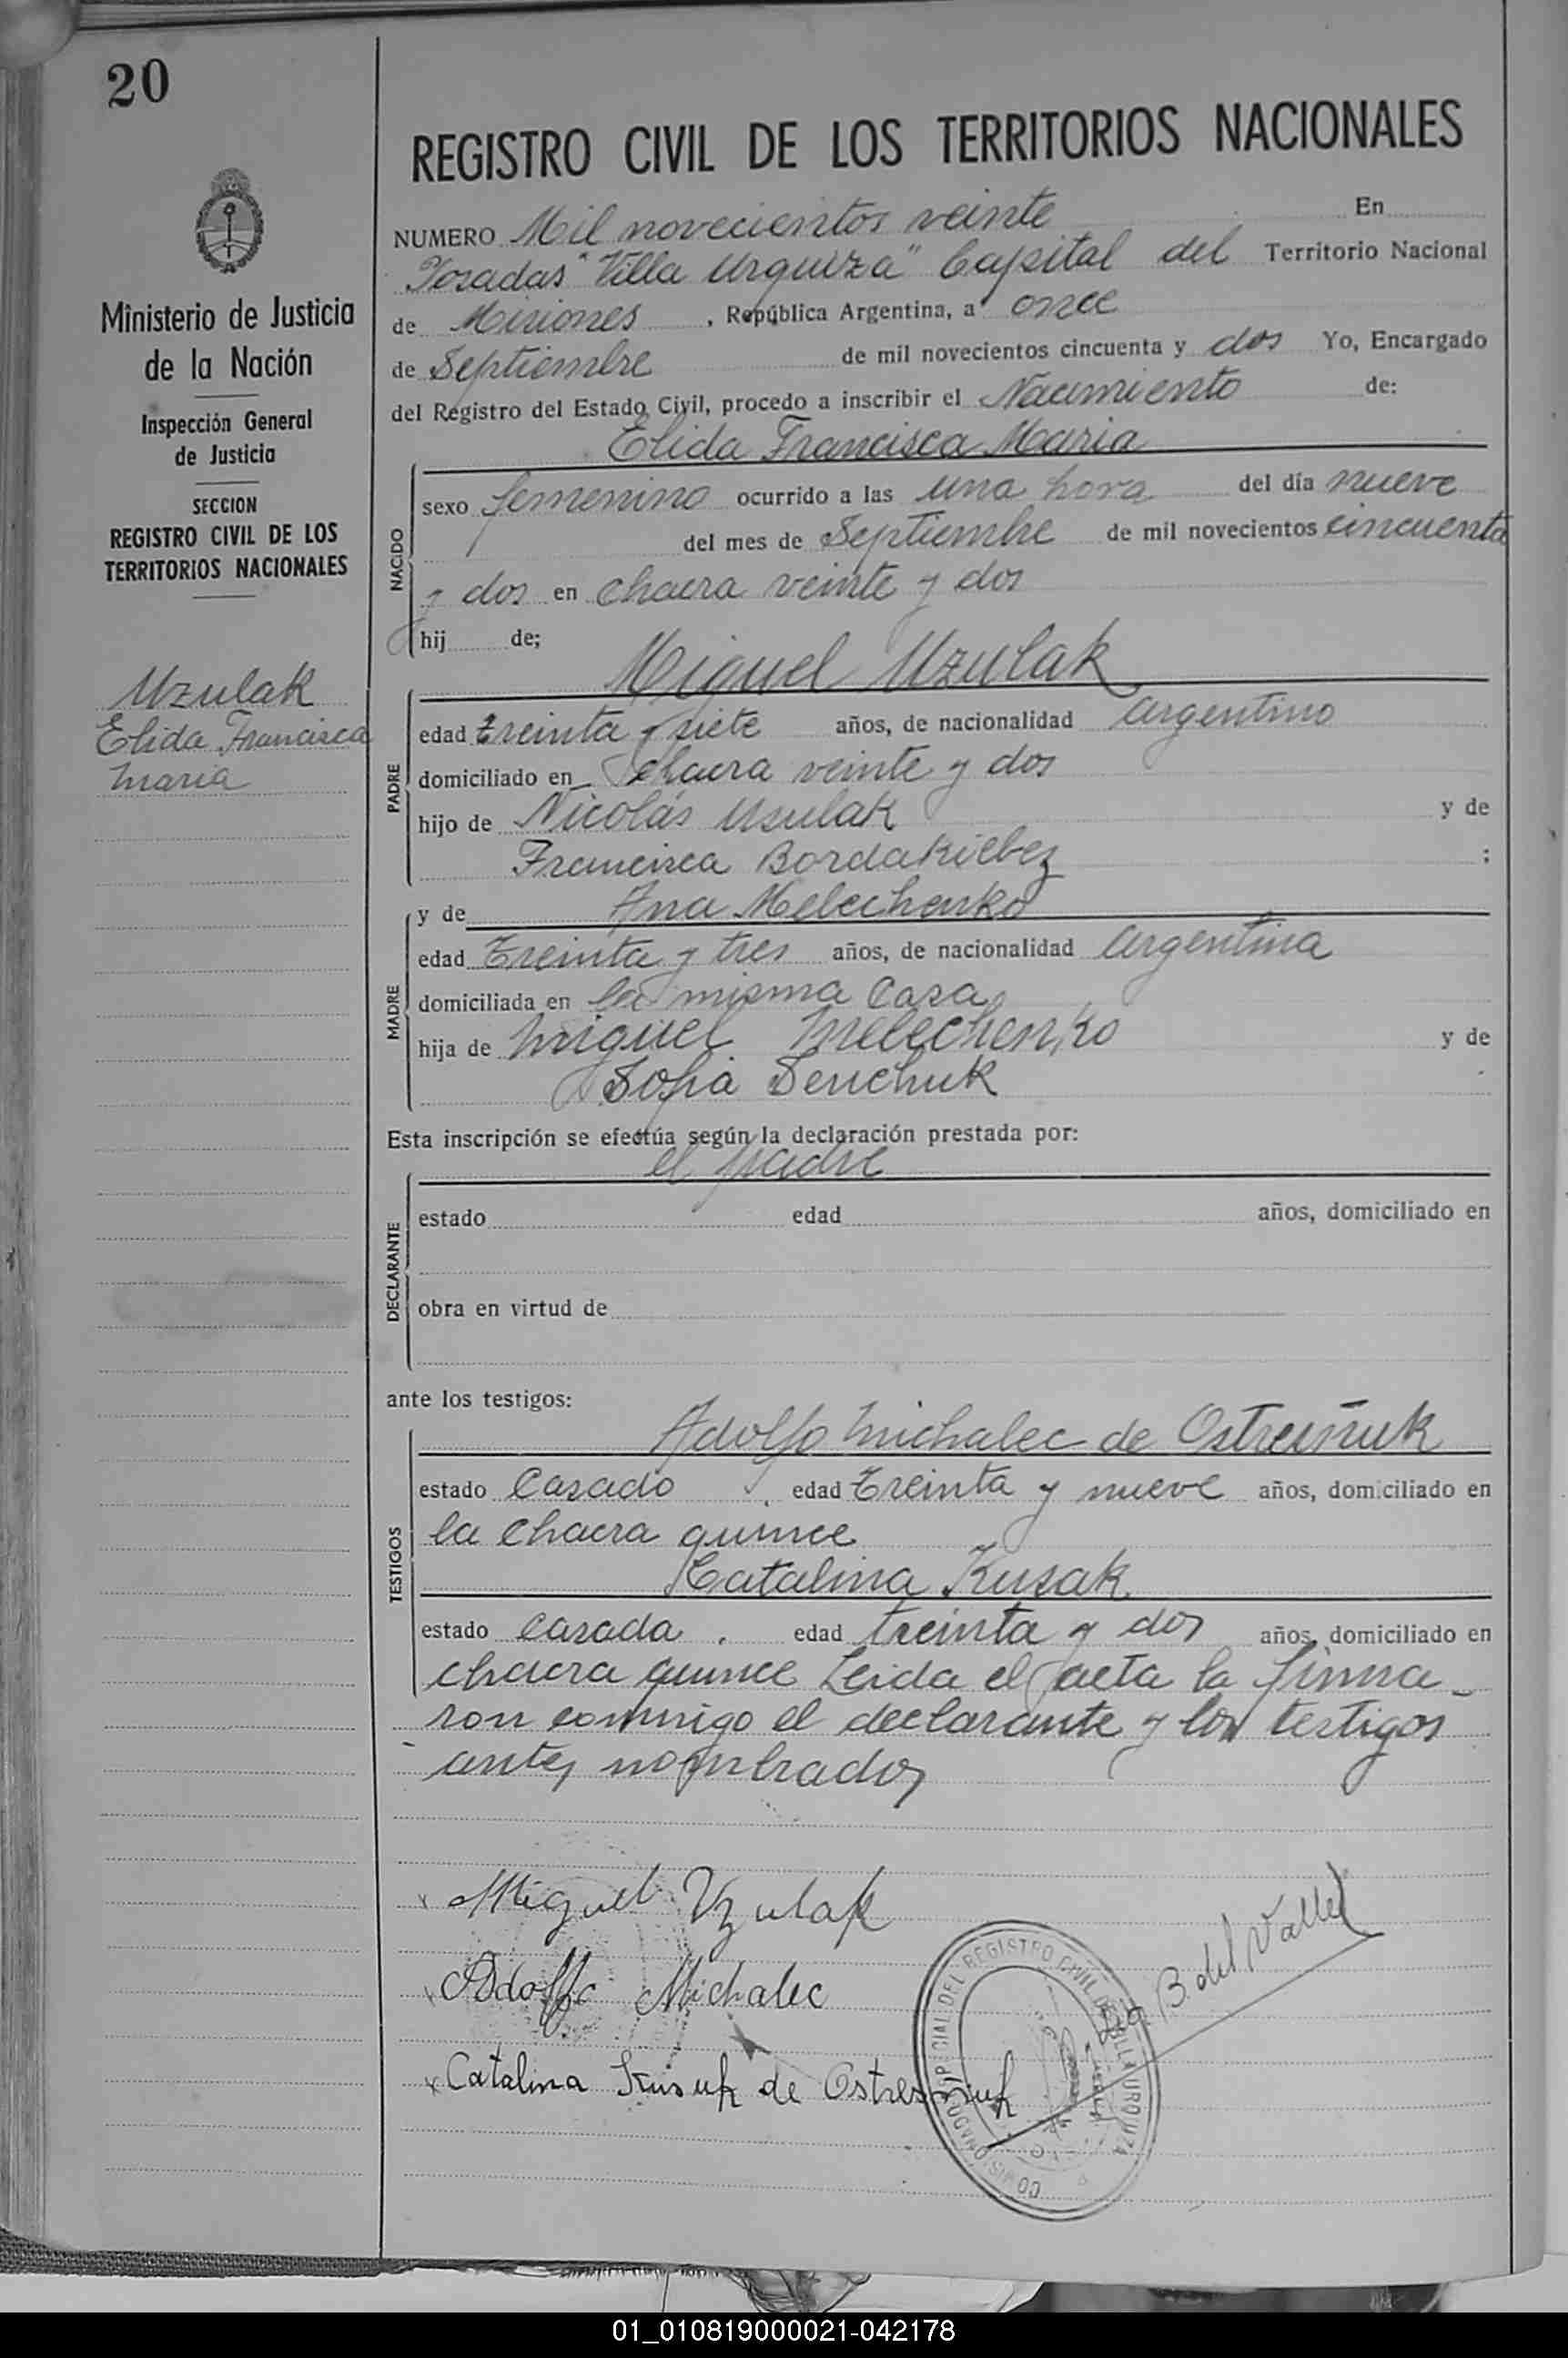 20
REGISTRO CIVIL DE LOS TERRITORIOS NACIONALES
Ministerio de Justicia
de la Nación
Inspección General
de Justicia
SECCION
REGISTRO CIVIL DE LOS
TERRITORIOS NACIONALES
Uzulak
Elida Francisca
Maria
NUMERO Mil novecientos veinte En
Posadas "Villa Urquiza" Capital del Territorio Nacional
de Misiones, República Argentina, a once
de Septiembre de mil novecientos cincuenta y dos Yo, Encargado
del Registro del Estado Civil, procedo a inscribir el Nacimiento de:
Elida Francisca Maria
NACIDO
sexo femenino ocurrido a las una hora del día nueve
del mes de Septiembre de mil novecientos cincuenta
y dos en Chacra veinte y dos
hij de;
Miguel Uzulak
PADRE
edad treinta y siete años, de nacionalidad argentino
domiciliado en Chacra veinte y dos
hijo de Nicolás Usulak y de
Francisca Bordakiebez ;
MADRE
y de Ana Melechenko
edad Treinta y tres años, de nacionalidad argentina
domiciliada en la misma Casa
hija de Miguel Melechenko y de
Sofia Senchuk
Esta inscripción se efectúa según la declaración prestada por:
el padre
DECLARANTE
estado edad años, domiciliado en
obra en virtud de
ante los testigos:
TESTIGOS
Adolfo Michalec de Ostreiñuk
estado Casado edad Treinta y nueve años, domiciliado en
la Chacra quince
Catalina Kusak
estado casada. edad treinta y dos años, domiciliado en
chacra quince Leida el acta la firma-
ron conmigo el declarante y los testigos
antes nombrados
x Miguel Uzulak
x Adolfo Michalec
x Catalina Kusuk de
B del Valle
COMISIONADO ESPECIAL DEL REGISTRO CIVIL DE VILLA URQUIZA
01_010819000021-042178